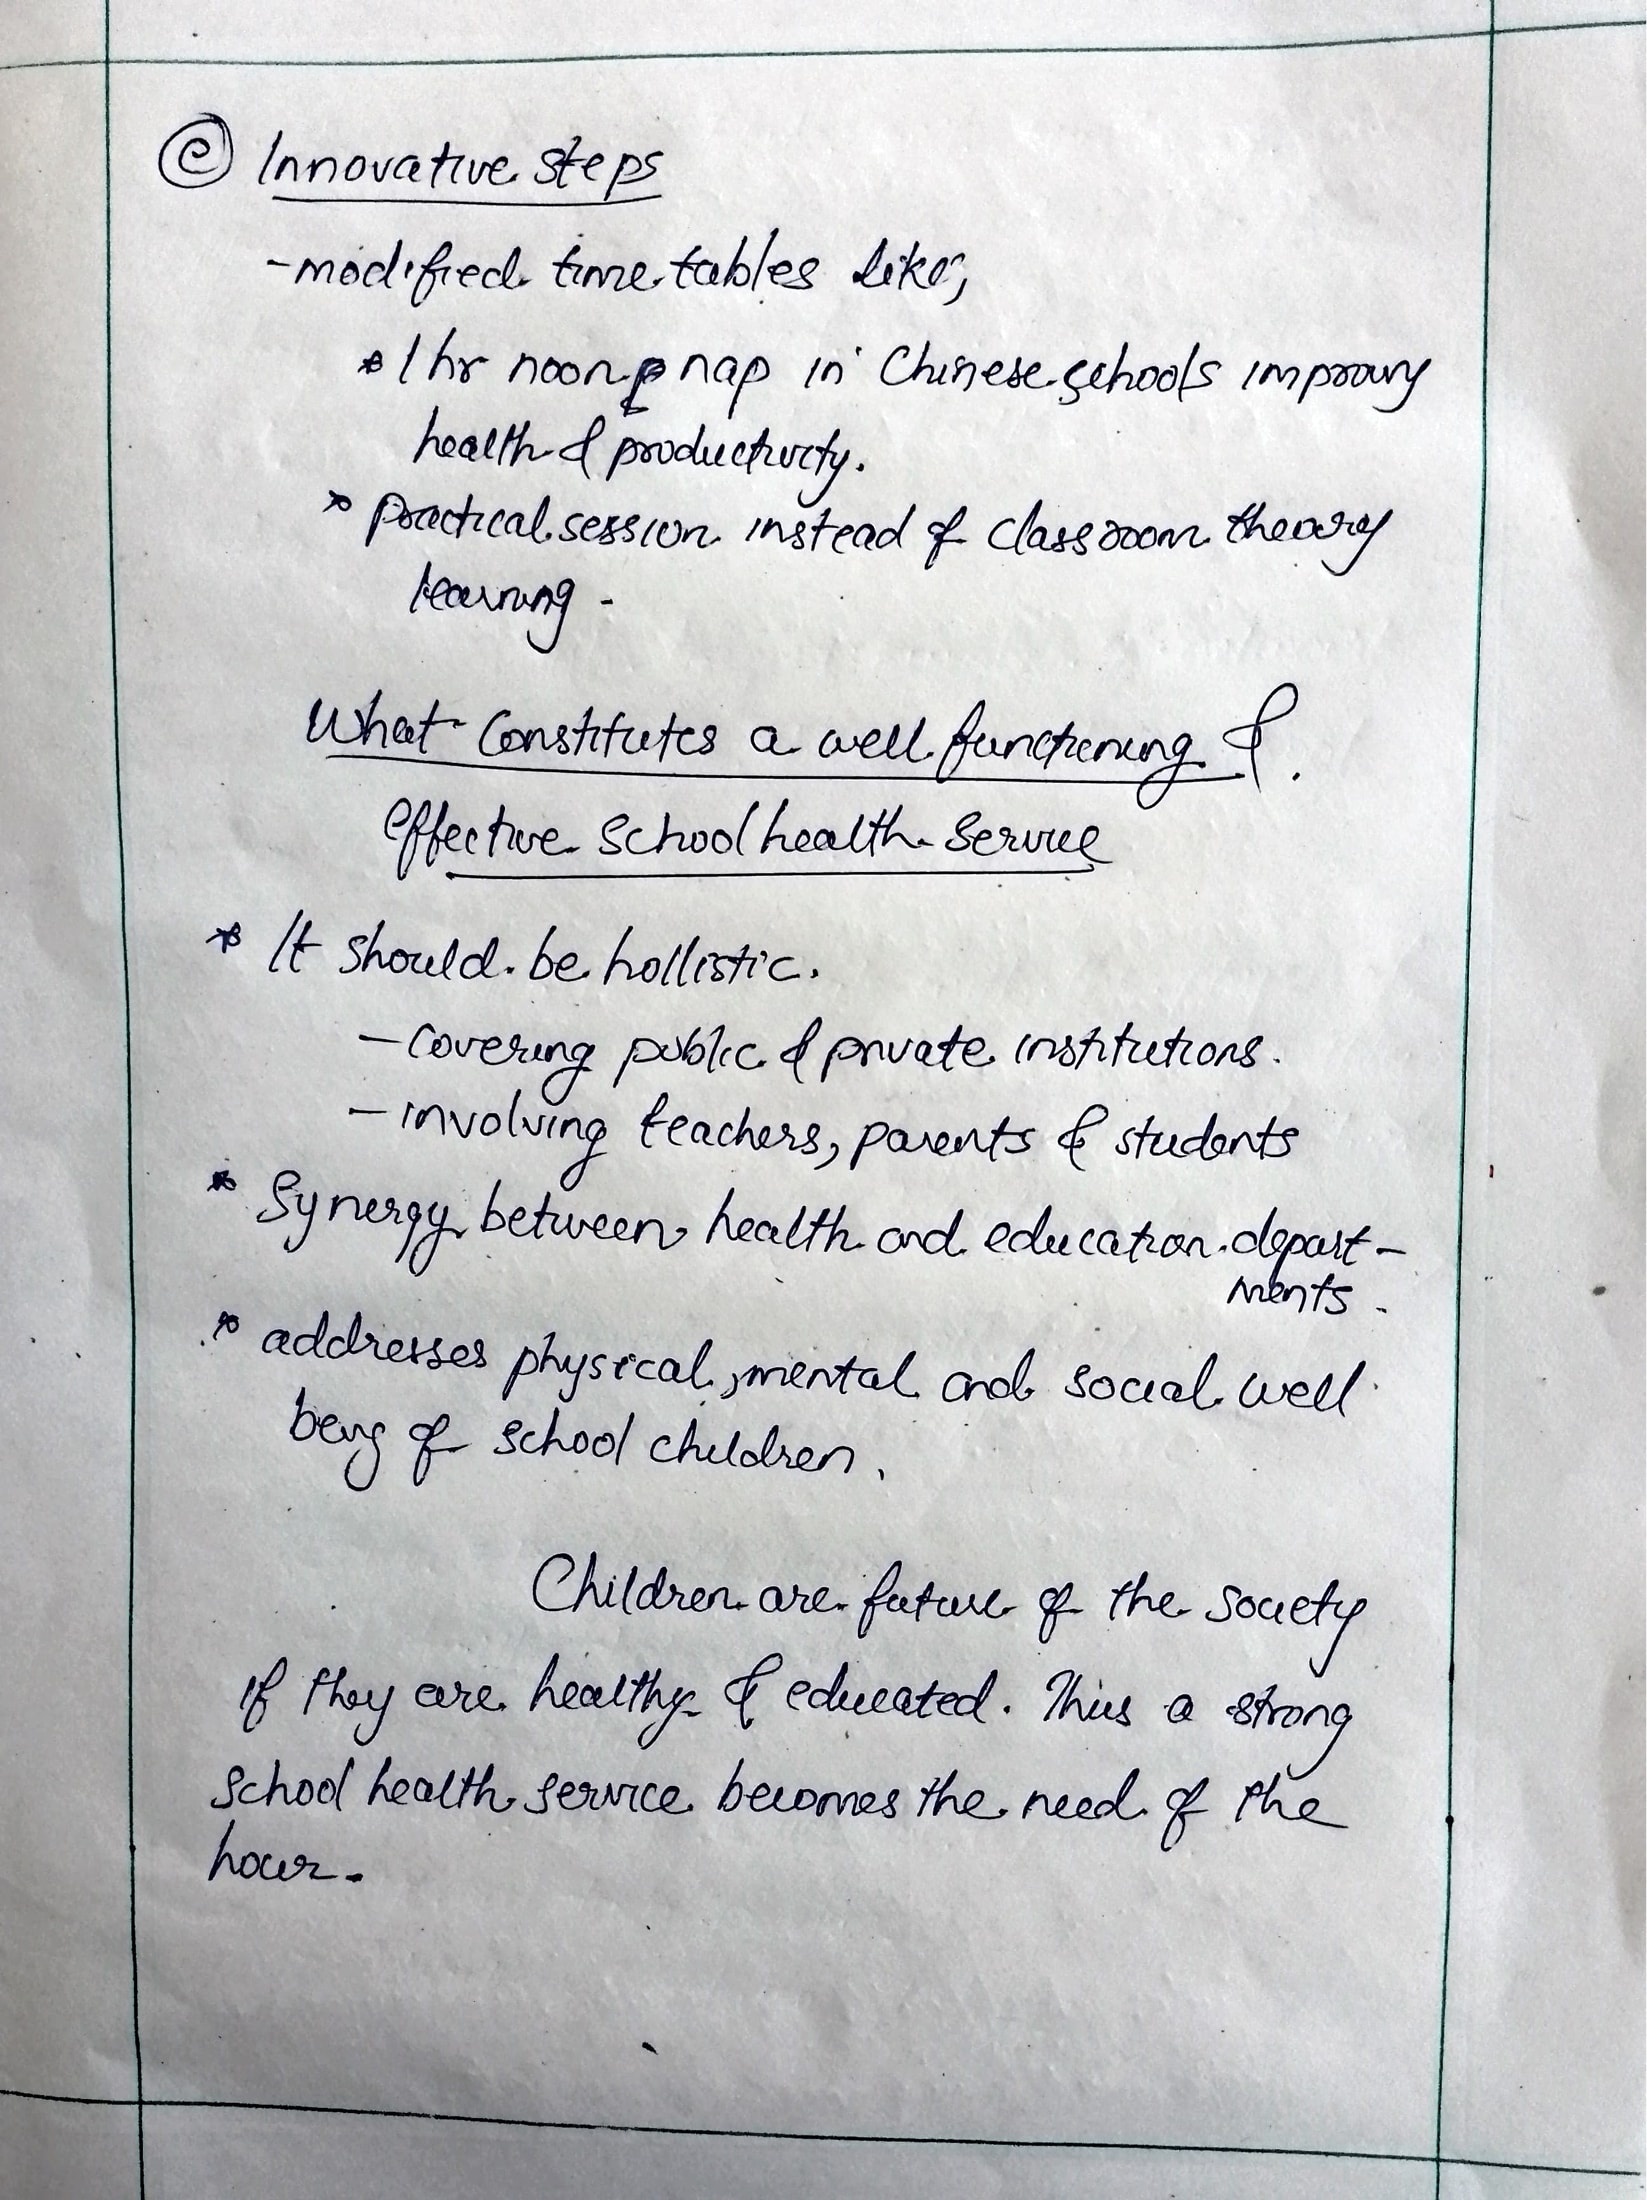 ⓔ Innovative steps
- modified time tables like,
* 1 hr noon nap in Chinese schools improving
health & productivity.
* Practical session instead of classroom theory
learning -
What constitutes a well functioning &
Effective school health service
* It should be hollistic.
- covering public & private institutions.
- involving teachers, parents & students
* Synergy between health and education depart-
ments.
* addresses physical, mental and social well
being of school children.
Children are future of the society
if they are healthy & educated. Thus a strong
school health service becomes the need of the
hour.